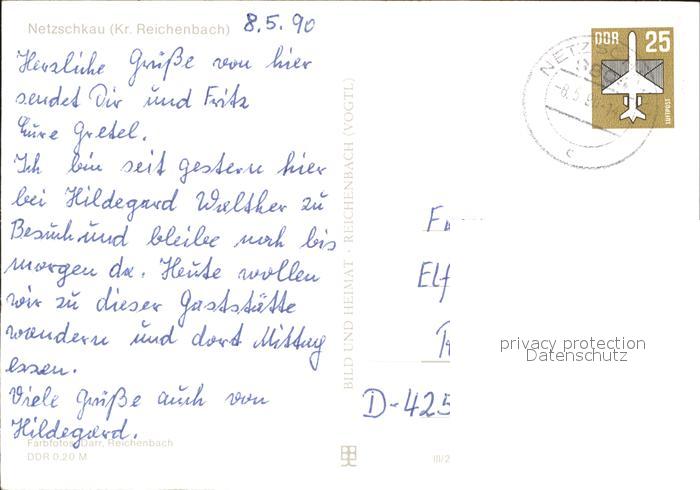 Netzschkau (Kr. Reichenbach) 8.5.90
Herzliche Grüße von hier
sendet Dir und Fritz
Eure Gretel.
Ich bin seit gestern hier
bei Hildegard Walther zu
Besuch und bleibe noch bis
morgen da. Heute wollen
wir zu dieser Gaststätte
wandern und dort Mittag
essen.
Viele Grüße auch von
Hildegard.
Farbfoto: Darr, Reichenbach
DDR 0,20 M
BILD UND HEIMAT · REICHENBACH (VOGTL)
III/2
DDR 25
LUFTPOST
Elf
D-425
privacy protection
Datenschutz